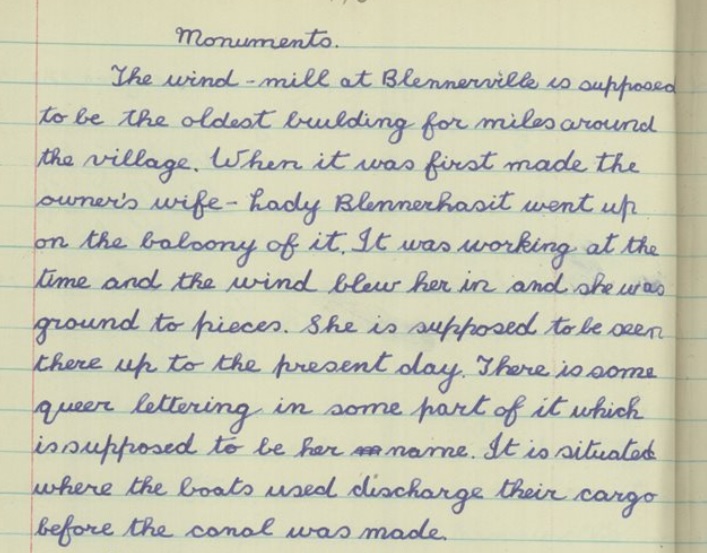 Monuments.
The wind-mill at Blennerville is supposed
to be the oldest building for miles around
the village. When it was first made the
owner's wife - Lady Blennerhasit went up
on the balcony of it. It was working at the
time and the wind blew her in and she was
ground to pieces. She is supposed to be seen
there up to the present day. There is some
queer lettering in some part of it which
is supposed to be her name. It is situated
where the boats used discharge their cargo
before the canal was made.